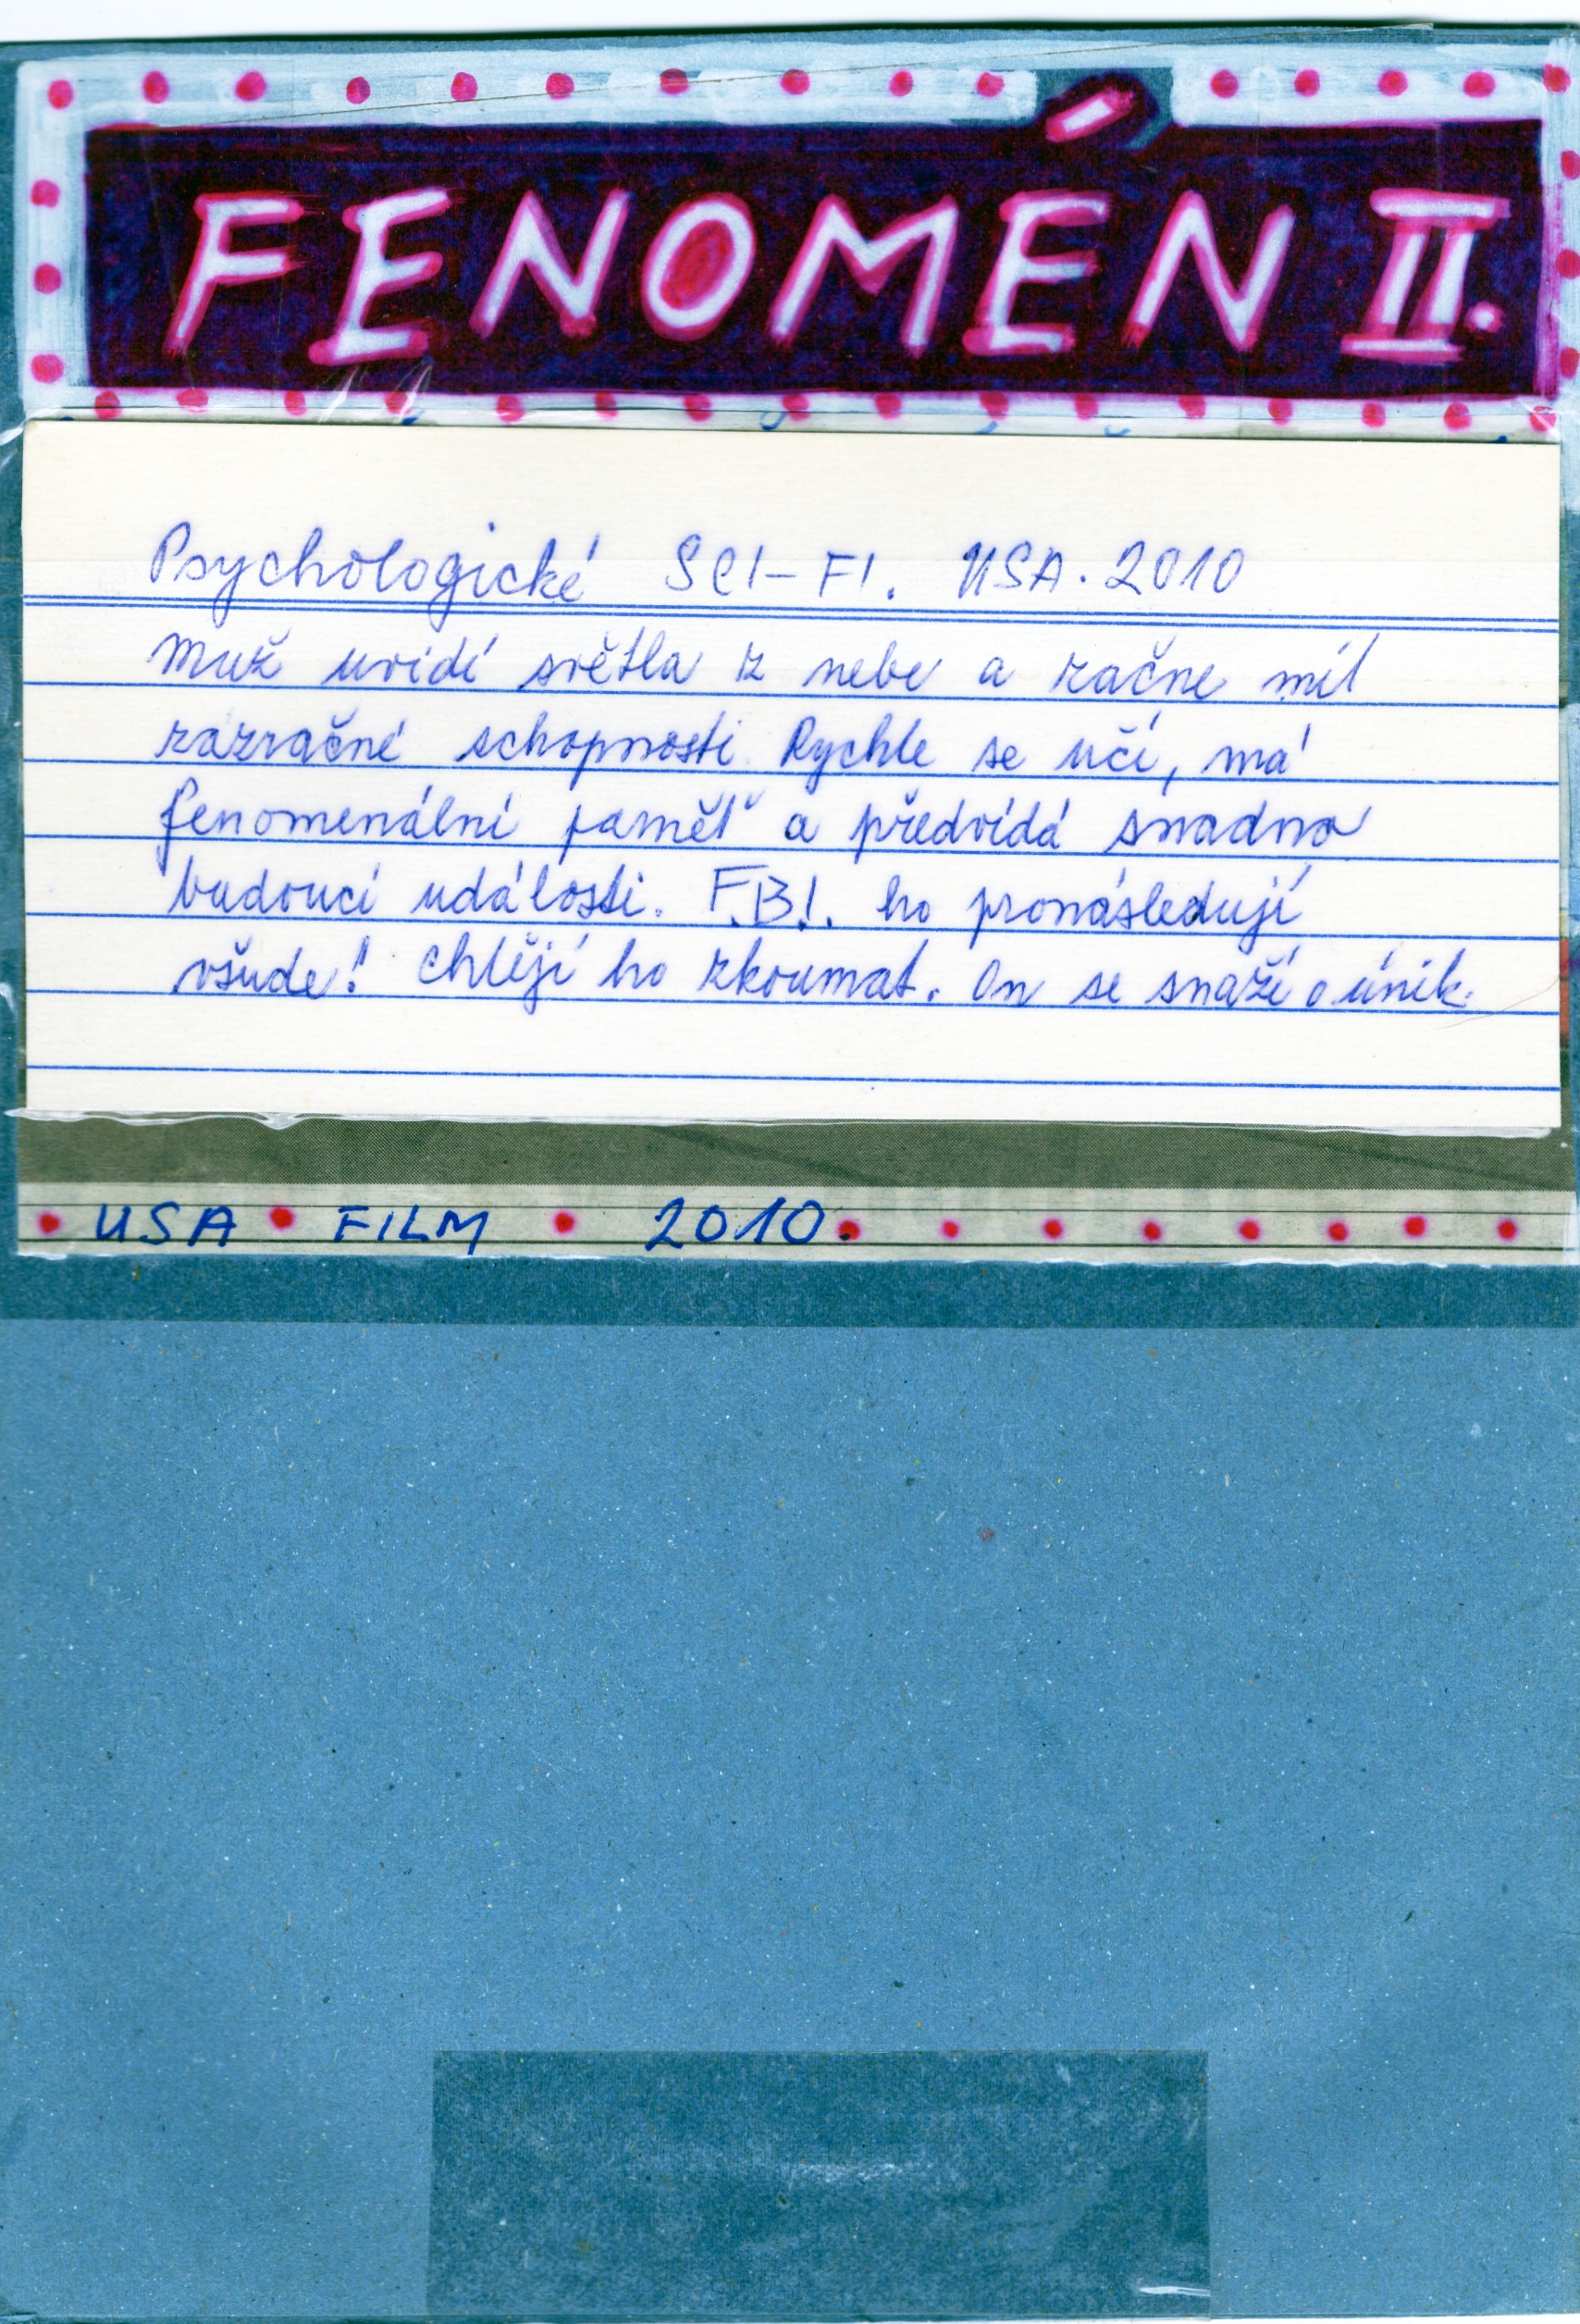 FENOMÉN II.
Psychologické SCI-FI. USA. 2010
Muž uvidí světla z nebe a začne mít
zázračné schopnosti. Rychle se učí, má
fenomenální paměť a předvídá snadno
budoucí události. F.B.I. ho pronásledují
všude! Chtějí ho zkoumat. On se snaží o únik.
USA • FILM • 2010.